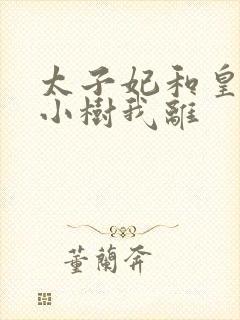 太子妃和皇
小樹我離
董蘭奔